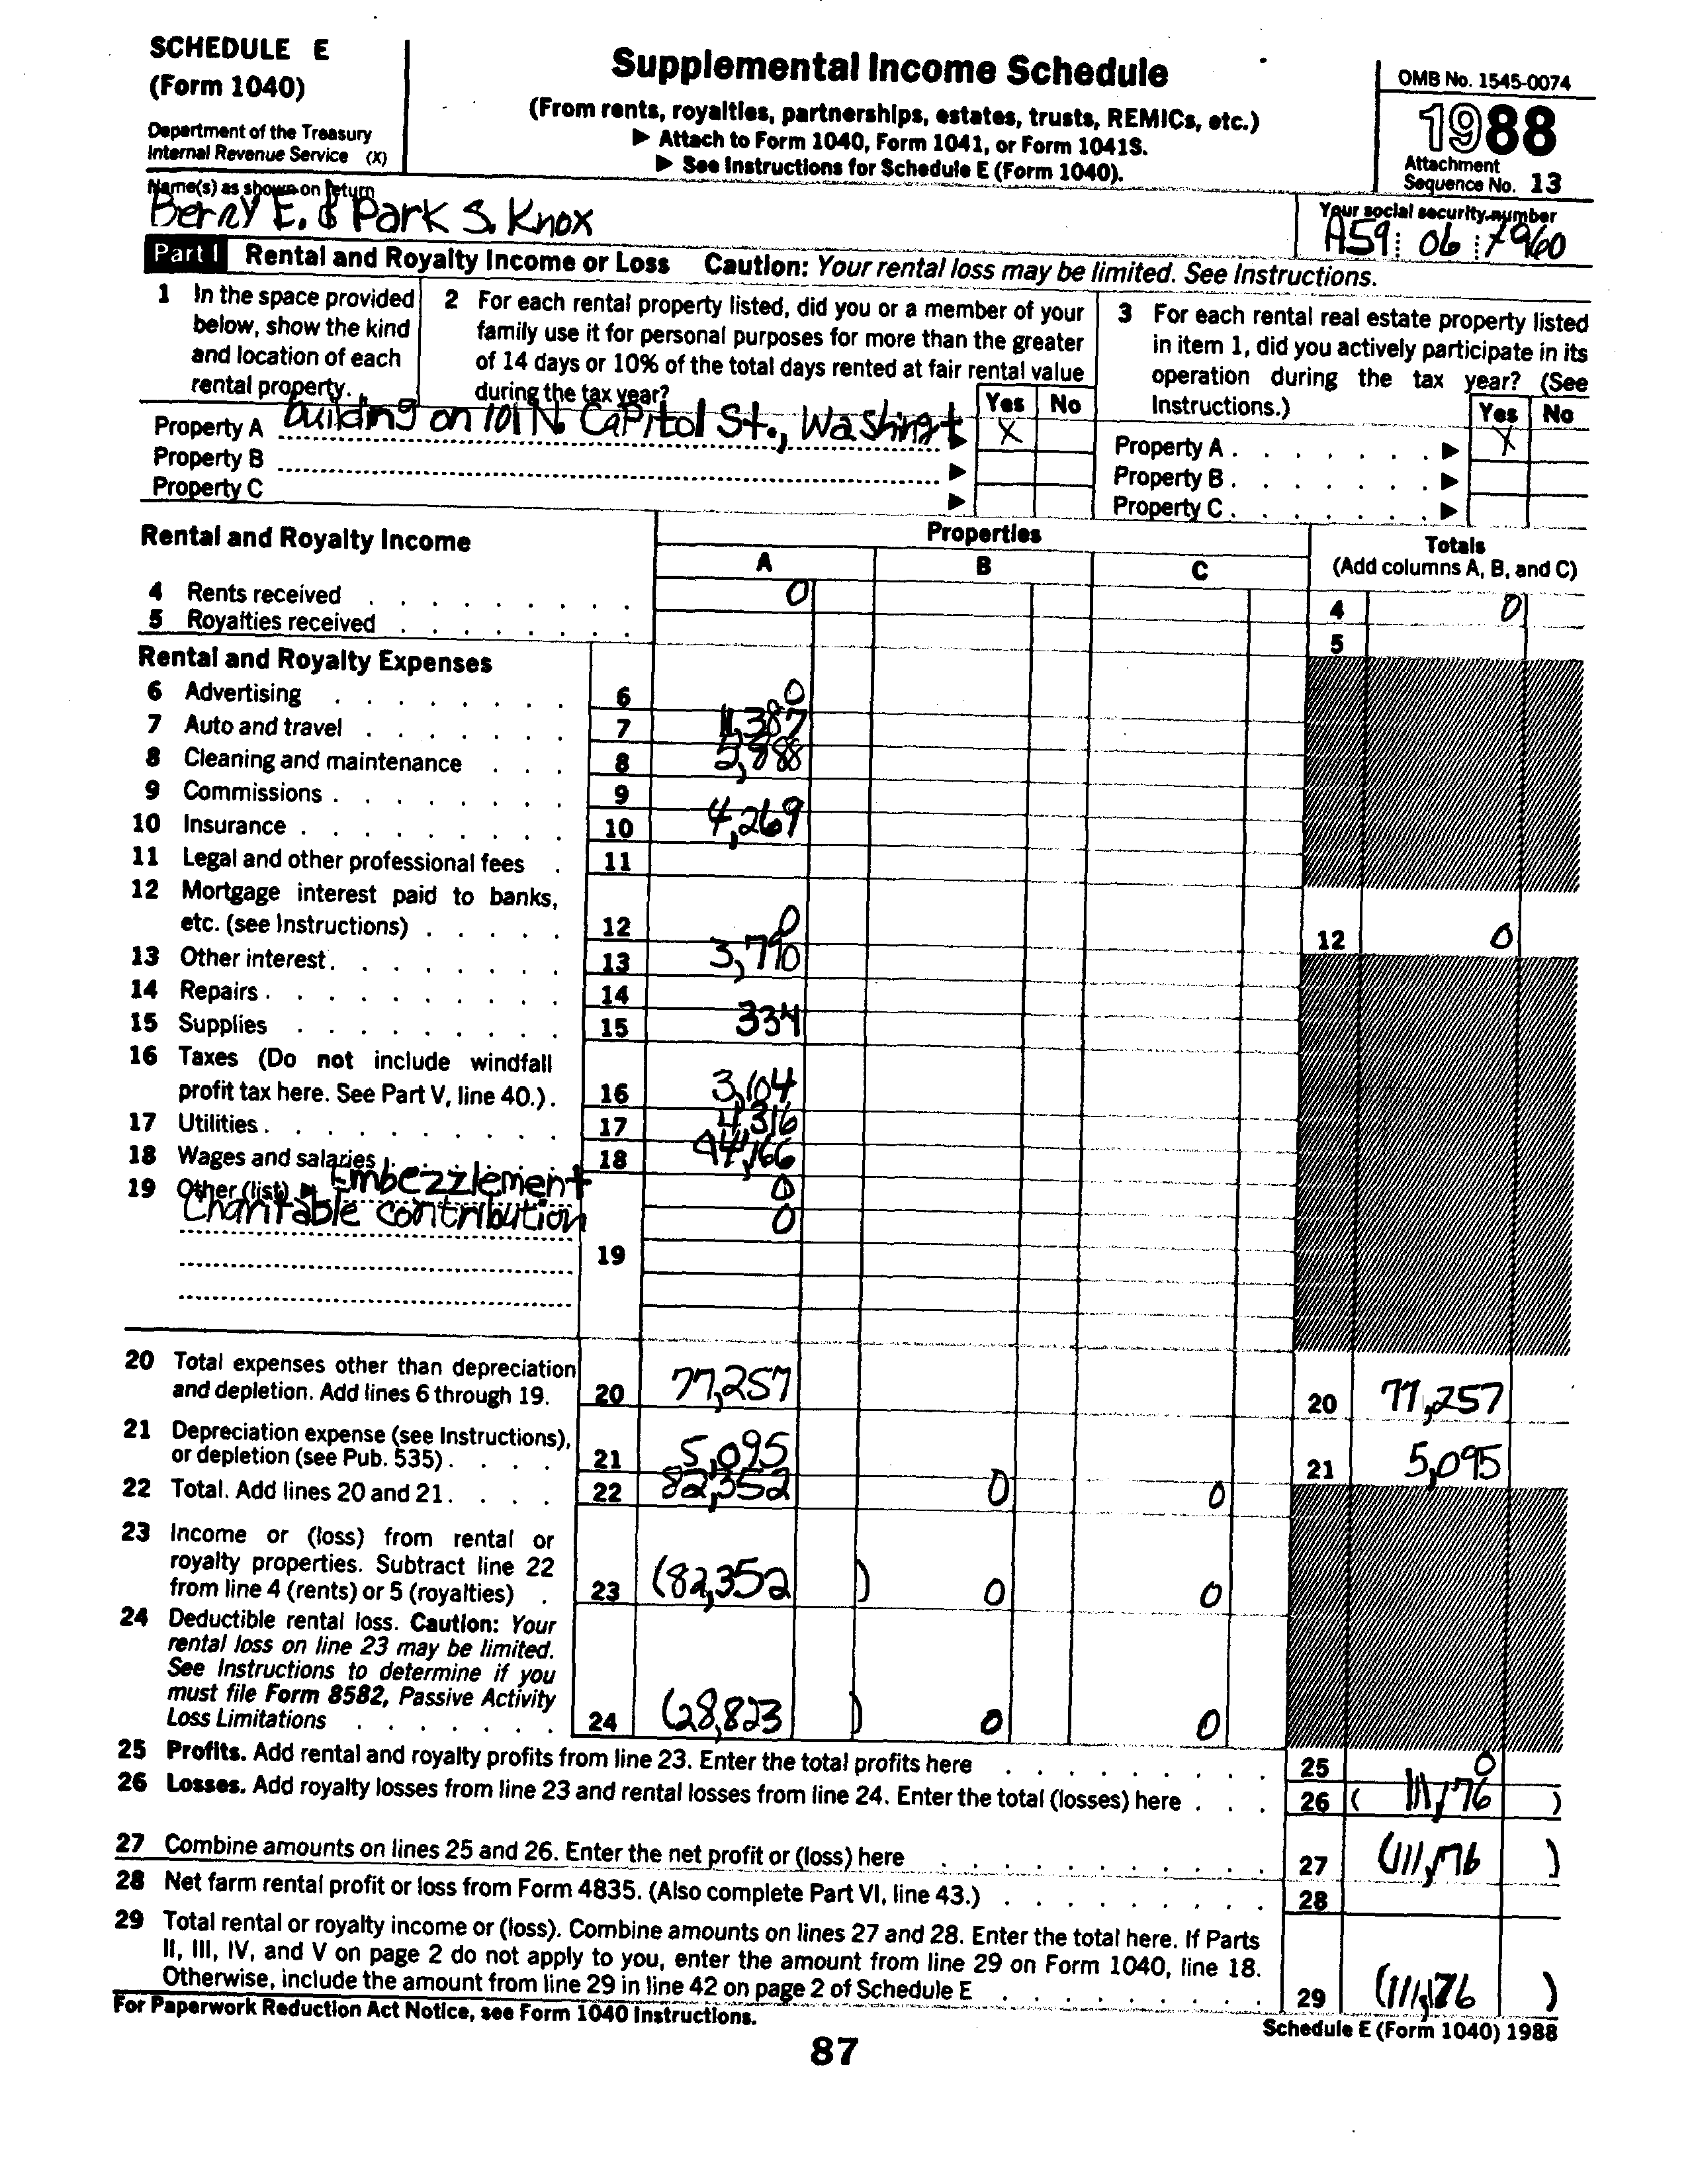 SCHEDULE E
(Form 1040)
Department of the Treasury
Internal Revenue Service (X)
Supplemental Income Schedule
(From rents, royalties, partnerships, estates, trusts, REMICs, etc.)
▶ Attach to Form 1040, Form 1041, or Form 1041S.
▶ See Instructions for Schedule E (Form 1040).
OMB No. 1545-0074
1988
Attachment
Sequence No. 13
Name(s) as shown on return
Berry E. & Park S. Knox
Your social security number
A59 06 7960
Part I Rental and Royalty Income or Loss Caution: Your rental loss may be limited. See Instructions.
1 In the space provided
below, show the kind
and location of each
rental property.
2 For each rental property listed, did you or a member of your
family use it for personal purposes for more than the greater
of 14 days or 10% of the total days rented at fair rental value
during the tax year?
Yes No
3 For each rental real estate property listed
in item 1, did you actively participate in its
operation during the tax year? (See
Instructions.)
Yes No
Property A building on 101 N. Capitol St., Washingt ▶ X
Property B ▶
Property C ▶
Property A . . . . . . . ▶ X
Property B . . . . . . . ▶
Property C . . . . . . . ▶
Rental and Royalty Income
Properties
A B C
Totals
(Add columns A, B, and C)
4 Rents received 0 4 0
5 Royalties received 5
Rental and Royalty Expenses
6 Advertising 6 0
7 Auto and travel 7
8 Cleaning and maintenance 8
9 Commissions 9
10 Insurance 10 4,269
11 Legal and other professional fees 11
12 Mortgage interest paid to banks,
etc. (see Instructions) 12 0 12 0
13 Other interest 13 3,790
14 Repairs 14
15 Supplies 15 334
16 Taxes (Do not include windfall
profit tax here. See Part V, line 40.) 16 3,104
17 Utilities 17 4,316
18 Wages and salaries 18
19 Other (list) ▶ Embezzlement 0
Charitable contribution 0
19
20 Total expenses other than depreciation
and depletion. Add lines 6 through 19. 20 77,257 20 77,257
21 Depreciation expense (see Instructions),
or depletion (see Pub. 535) 21 5,095 21 5,095
22 Total. Add lines 20 and 21. 22 82,352 0 0
23 Income or (loss) from rental or
royalty properties. Subtract line 22
from line 4 (rents) or 5 (royalties) 23 (82,352) 0 0
24 Deductible rental loss. Caution: Your
rental loss on line 23 may be limited.
See Instructions to determine if you
must file Form 8582, Passive Activity
Loss Limitations 24 (28,823) 0 0
25 Profits. Add rental and royalty profits from line 23. Enter the total profits here 25 0
26 Losses. Add royalty losses from line 23 and rental losses from line 24. Enter the total (losses) here 26 (111,176)
27 Combine amounts on lines 25 and 26. Enter the net profit or (loss) here 27 (111,176)
28 Net farm rental profit or loss from Form 4835. (Also complete Part VI, line 43.) 28
29 Total rental or royalty income or (loss). Combine amounts on lines 27 and 28. Enter the total here. If Parts
II, III, IV, and V on page 2 do not apply to you, enter the amount from line 29 on Form 1040, line 18.
Otherwise, include the amount from line 29 in line 42 on page 2 of Schedule E 29 (111,176)
For Paperwork Reduction Act Notice, see Form 1040 Instructions.
Schedule E (Form 1040) 1988
87